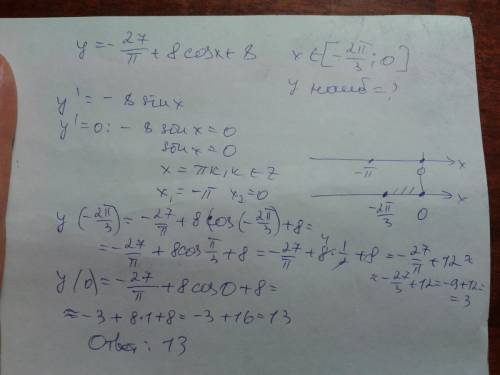 y = -27/π + 8cosx + 8    x ∈ [-2π/3; 0]
y наиб = ?
y' = -8 sin x
y' = 0: -8 sin x = 0
sin x = 0
x = πk, k ∈ Z
x₁ = -π  x₂ = 0
-π  0  x
-2π/3  0  x
y(-2π/3) = -27/π + 8(cos(-2π/3)) + 8 =
= -27/π + 8cos π/3 + 8 = -27/π + 8·1/2 + 8 = -27/π + 12 ≈
≈ -27/3 + 12 = -9 + 12 =
= 3
y(0) = -27/π + 8cos0 + 8 =
≈ -3 + 8·1 + 8 = -3 + 16 = 13
Ответ: 13